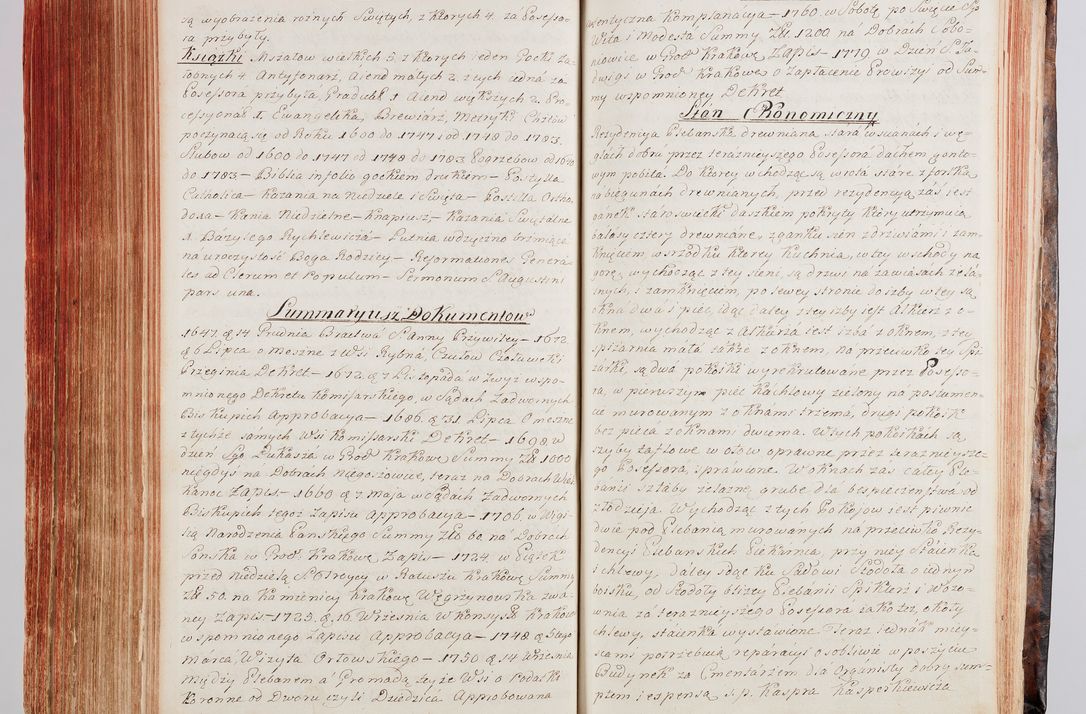 są wyobrażenia rożnych Swiętych, z ktorych 4. za Posesso-
ra przybyły.
Książki Mszałow wielkich 5. z ktorych ieden Gocki Ża-
łobnych 4. Antyfonarz, Aiend małych 2. z tych iedna za
Possessora przybyła, Graduał 1. Aiend większych 2. Pro-
cessyonał 1. Ewangeliká, Brewiarz, Metryki Chrztow
poczynaią się od Roku 1600 do 1747 i od 1748 do 1783.
Slubow od 1600 do 1747 od 1748 do 1783 Pogrzebow od 1640
do 1783 — Biblia infolio gockiem drukiem — Postylla
Catholica — Kazania na Niedziele i Swięta — Postilla Ortho-
doxa — Kazania Niedzielne — Knapiusz — Kazania Swiętalne
X. Bazylego Rychlewicza — Lutnia wdzięczno brzmiąca
na uroczystość Boga Rodzicy — Reformationes Genera-
les ad Clerum et Populum — Sermonum S. Augustini
pars una.
Summaryusz Dokumentow
1647. d. 14 Grudnia Bractwa S. Anny Przywiley — 1672.
d. 6 Lipca o meszne z Wsi Rybna, Czułow Czosuwecki
Przeginia Dekret — 1672. d. 7 Listopada w Zwyż wspo-
mnionego Dekretu Komissarskiego, w Sądach Zadwornych
Biskupich Approbacya — 1686. d. 31. Lipca O meszne
z tychże samych Wsi Komissarski Dekret — 1698. w
dzień Sgo Łukasza w Grod. Krakow. Summy Zł. 1000
niegdys na Dobrach Niegoszowice, teraz na Dobrach
Zapis — 1660 d. 7 Maja w Sądach Zadwornych
Biskupich tegoż Zapisu Approbacya — 1706. w Wigi-
lią Narodzenia Pańskiego Summy Zło. 60 na Dobrach
w Grod. Krakow. Zapis — 1724. w Piątek
przed Niedzielą S. Troycy w Ratuszu Krakow. Summy
Zł. 50. na Kamienicy Krakow. Węgrzynowska zwa-
ney Zapis — 1729. d. 16. Wrzesnia w Konsyst. Krakow.
wspomnionego Zapisu Approbacya — 1748 d. 5ago
Marca, Wizyta Orłowskiego — 1750 d. 14 Wrzesnia
między Plebanem a Gromadą teyże Wsi o Podatki
Koronne od Dworu czyli Dziedzica Approbowana
Kompłanacya — 1760. w Sobotę po Swięcie SS.
Wita i Modesta Summy Zł. 1200 na Dobrach
w Grod. Krakow. Zapis — 1779 w Dzień S. Ja-
dwigi w Grod. Krakow. o Zapłacenie Prowizyi od Sum-
my wspomnioney Dekret
Stan Ekonomiczny
Rezydencya Plebanska drewniana stara w scianach i wę-
głach dobra przez teraznieyszego Possessora dachem gonto-
wym pobita. Do ktorey wchodząc są wrota stare z fortką
na biegunach drewnianych, przed rezydencyą zas iest
ganek staroswiecki daszkiem pokryty ktory utrzymuią
balasy cztery drewniane, z ganku sien z drzwiami i zam-
knięciem, w srzodku ktorey Kuchnia, w tey wschody na
gorę, wychodząc z tey sieni, są drzwi na zawiasach żela-
znych, i zamknięciem, po lewey stronie do izby w tey są
okna dwa i piec, idąc daley z tey izby iest Alkierz z o-
knem, wychodząc z Alkierza iest izba z oknem, z tey
spizarnia mała także z oknem, na przeciwko tey Spi-
żarki, są dwa pokoiki wyrekrutowane przez Possesso-
ra, w pierwszym piec kachlowy zielony na postamen-
cie murowanym z oknami trzema, drugi pokoik
bez pieca z oknami dwiema. W tych pokoikach są
szyby taflowe w ołow oprawne przez teraznieysze-
go Possessora, sprawione. W oknach zas całey Ple-
banii sztaby żelazne grube dla bespieczeństwa od
złodzieja. Wychodząc z tych Pokojow iest piwnic
dwie pod Plebanią murowanych na przeciwko Rezy-
dencyi Plebanskich Piekarnia, przy niey Staienka
i chlewy, daley idąc ku Sadowi Stodoła o iednym
boisku, od Stodoły bliżey Plebanii Spiklerz i Wozo-
wnia za teraznieyszego Possessora iako też, około
chlewy, staienka wystawione. Teraz iednak miey-
scami potrzebuią reparacyi osobliwie w poszyciu
Budynek za Cmentarzem dla Organisty dobry sum-
ptem i espensą s. p. Kaspra Kasperkiewicza